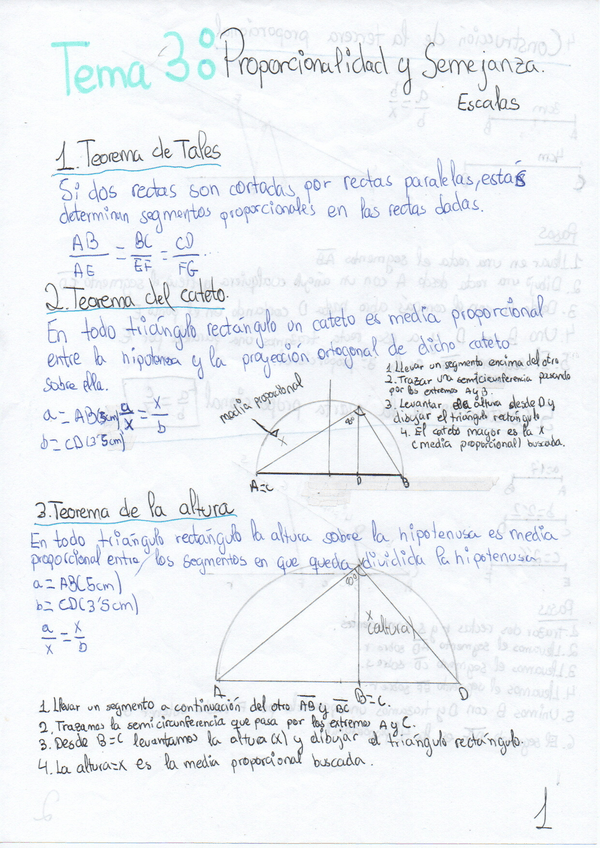 Tema 3: Proporcionalidad y Semejanza.
Escalas
1. Teorema de Tales
Si dos rectas son cortadas por rectas paralelas, estas
determinan segmentos proporcionales en las rectas dadas.
AB/AE = BC/EF = CD/FG
2. Teorema del cateto.
En todo triángulo rectangulo un cateto es media proporcional
entre la hipotenusa y la proyección ortogonal de dicho cateto
sobre ella.
a = AB(5cm) a/x = x/b
b = CD(3'5cm)
media proporcional
x
90°
A=C
D
B
1 Llevar un segmento encima del otro
2. Trazar un semicircunferencia pasando
por los extremos A y B.
3. Levantar la altura desde D y
dibujar el triangulo rectángulo
4. El cateto mayor es la X
(media proporcional) buscada.
3. Teorema de la altura
En todo triángulo rectángulo la altura sobre la hipotenusa es media
proporcional entre los segmentos en que queda dividida la hipotenusa
a = AB(5cm)
b = CD(3'5cm)
a/x = x/b
90°
x
(altura)
A
B=C.
D
1 Llevar un segmento a continuación del otro AB y BC
2. Trazamos la semicircunferencia que pasa por los extremos A y C.
3. Desde B=C levantamos la altura (x) y dibujar el triángulo rectángulo.
4. La altura=x es la media proporcional buscada.
1